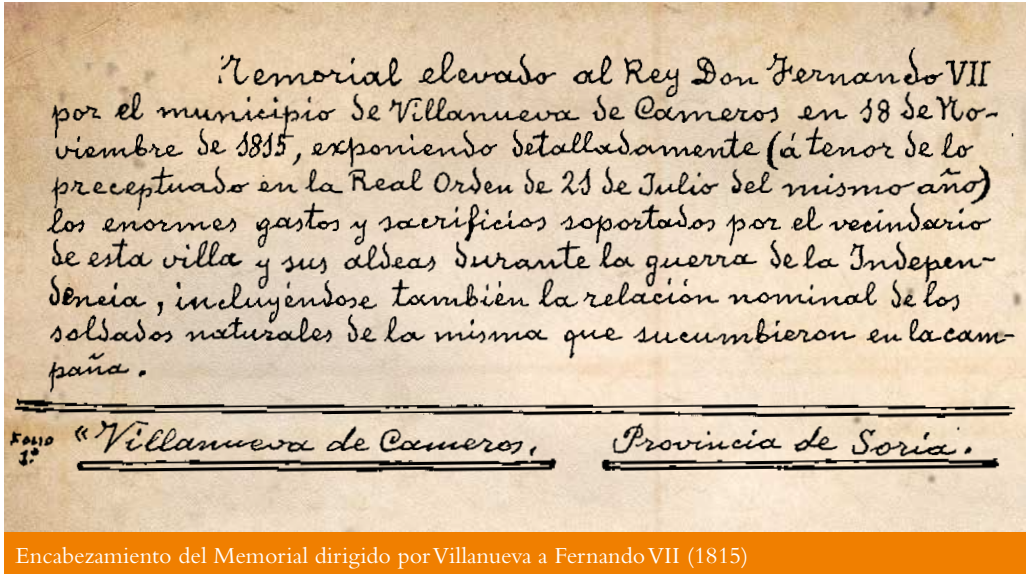 Memorial elevado al Rey Don Fernando VII
por el municipio de Villanueva de Cameros en 18 de No-
viembre de 1815, exponiendo detalladamente (á tenor de lo
preceptuado en la Real Orden de 21 de Julio del mismo año)
los enormes gastos y sacrificios soportados por el vecindario
de esta villa y sus aldeas durante la guerra de la Indepen-
dencia, incluyéndose también la relación nominal de los
soldados naturales de la misma que sucumbieron en la cam-
paña.
Folio 1º
"Villanueva de Cameros. Provincia de Soria.
Encabezamiento del Memorial dirigido por Villanueva a Fernando VII (1815)